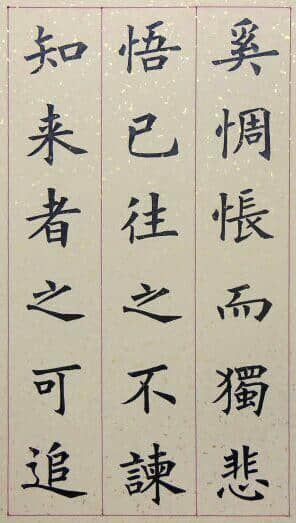 奚惆悵而獨悲
悟已往之不諫
知来者之可追